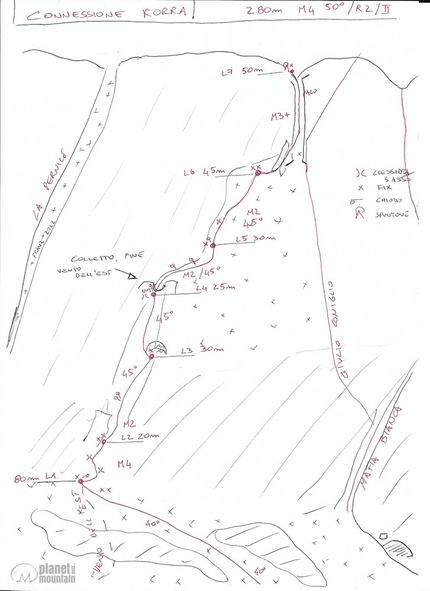 CONNESSIONE KORRA
280m M4 50°/R2/II
L7 50m
M3+
L6 45m
CLESSIDRA
SASSO
FIX
CHIODO
SPUNTONE
M2
45°
L5 30m
COLLETTO, FINE
VENTO
DELL'EST
M2/45°
L4 25m
45°
L3 30m
45°
M2
L2 20m
M4
80m L1
VENTO DELL'EST
40°
40°
LA PERNICE
GIULIO CONIGLIO
MAFIA BIANCA
planet
mountain